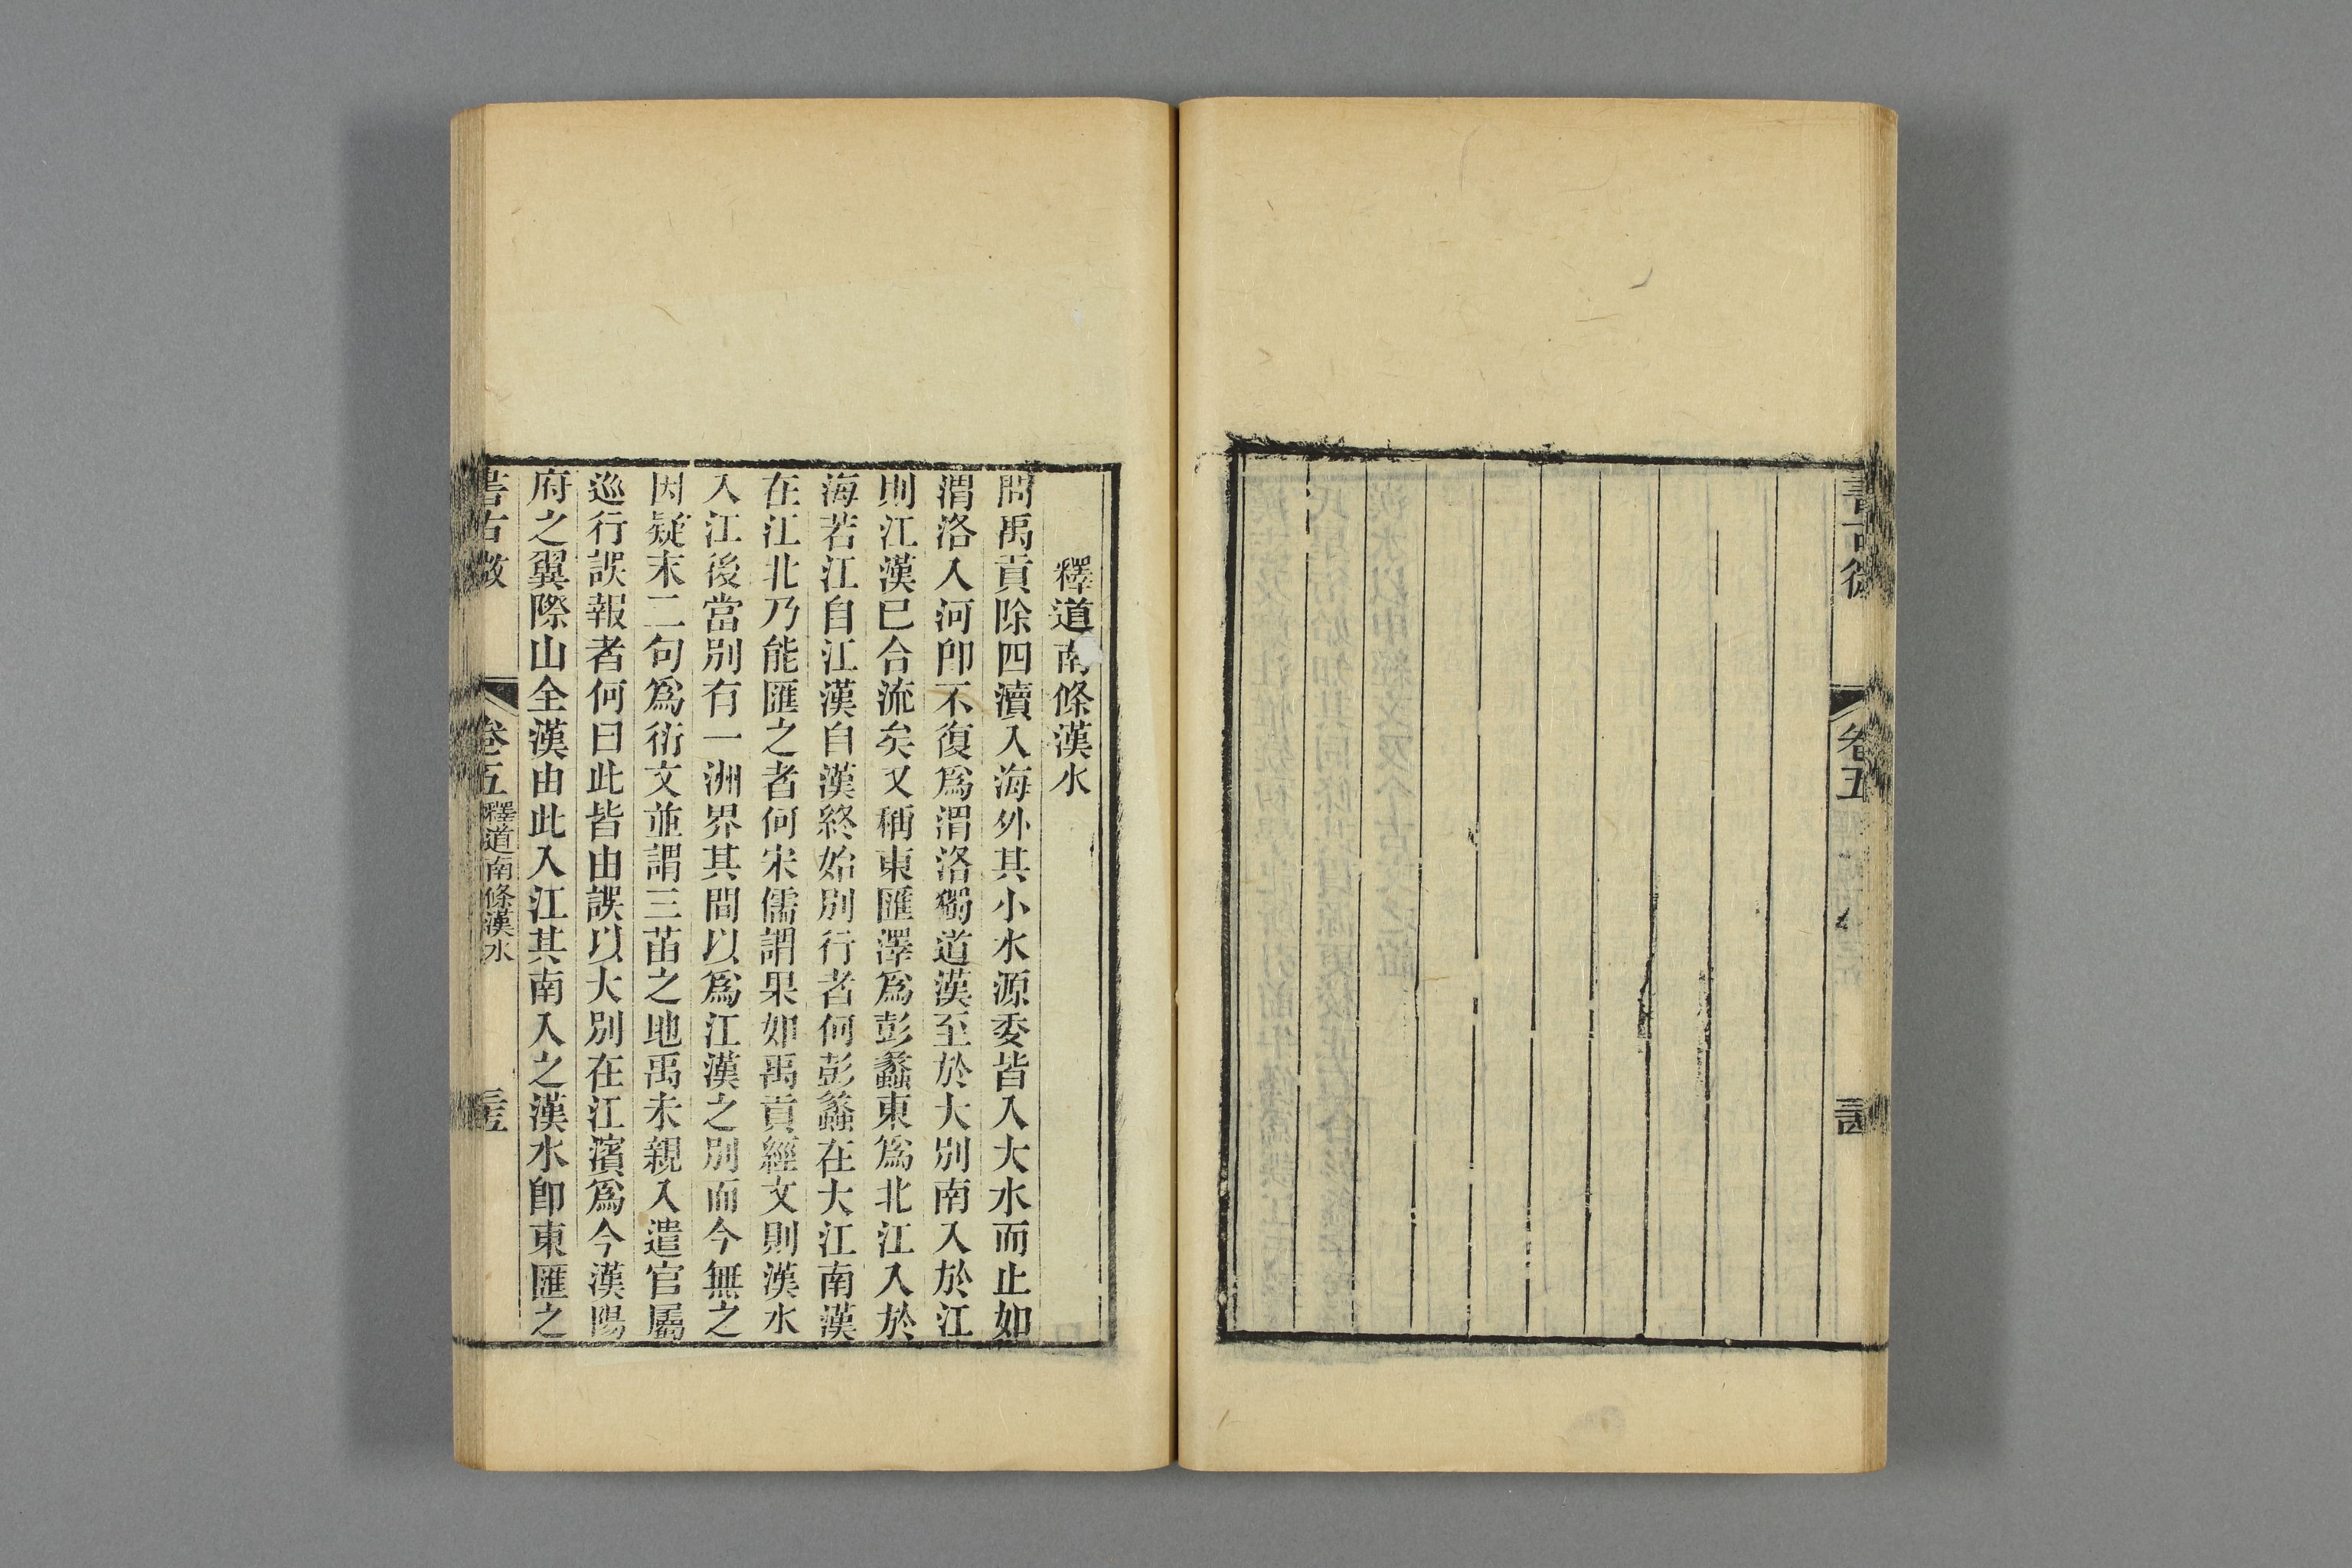 書古微
卷五
釋道南條漢水
問禹貢除四瀆入海外其小水源委皆入大水而止如
渭洛入河卽不復爲渭洛獨道漢至於大別南入於江
則江漢已合流矣又稱東匯澤爲彭蠡東爲北江入於
海若江自江漢自漢終始別行者何彭蠡在大江南漢
在江北乃能匯之者何宋儒謂果如禹貢經文則漢水
入江後當別有一洲界其間以爲江漢之別而今無之
因疑末二句爲衍文並謂三苗之地禹未親入遣官屬
巡行誤報者何曰此皆由誤以大別在江濱爲今漢陽
府之翼際山全漢由此入江其南入之漢水卽東匯之
書古微
卷五
釋道南條漢水